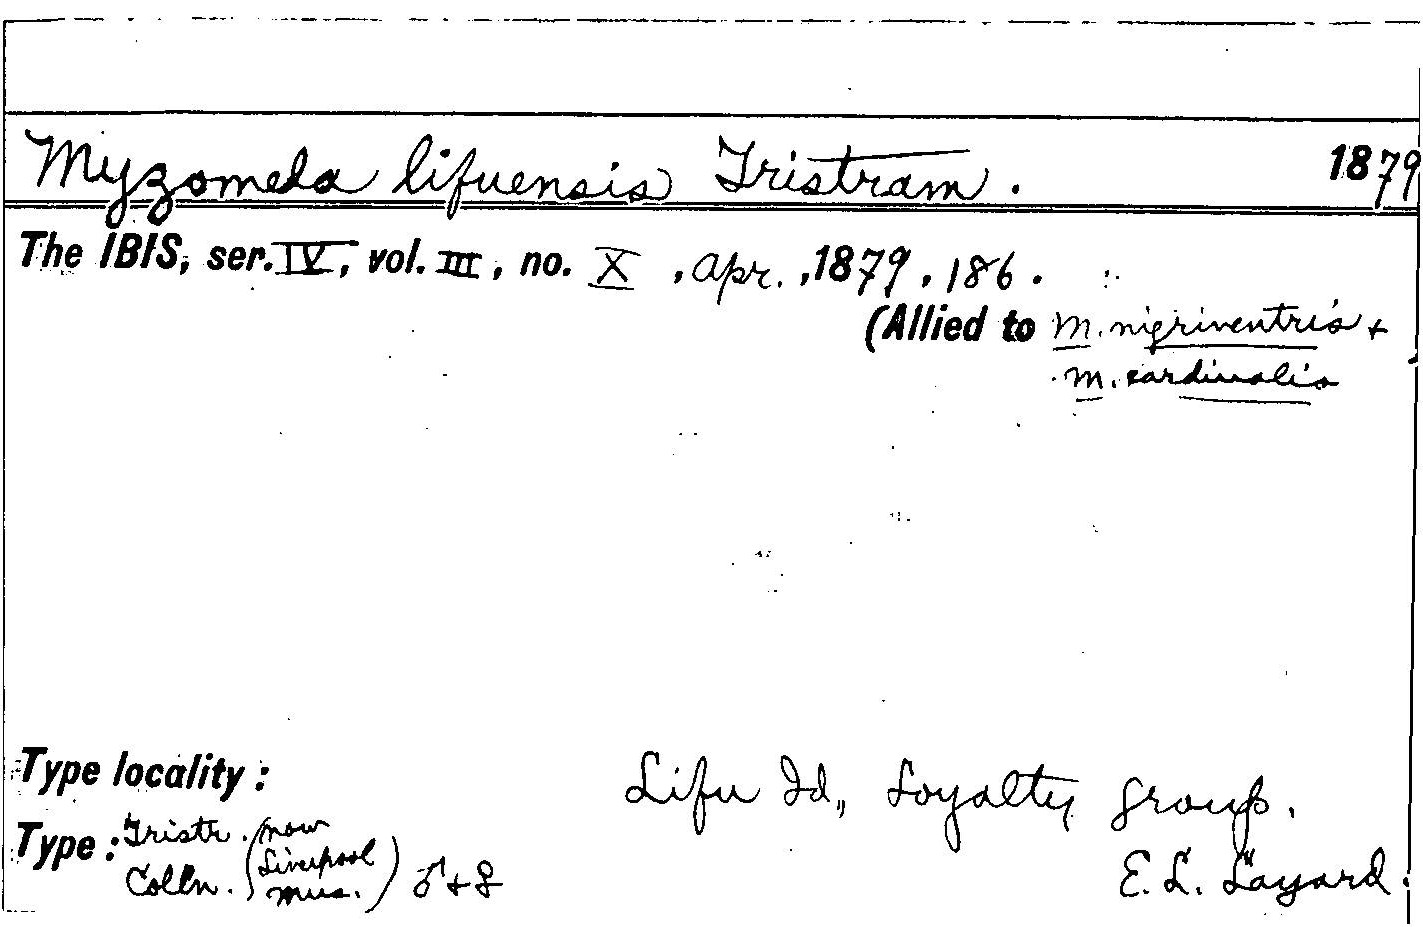 Myzomela lifuensis Tristram. 1879
The IBIS, ser. IV, vol. III, no. X, Apr., 1879, 186.
(Allied to M. nigriventris +
M. cardinalis
Type locality: Lifu Id., Loyalty group.
Type: Tristr. Colln. (now Liverpool Mus.) ♂ + ♀ E. L. Layard.